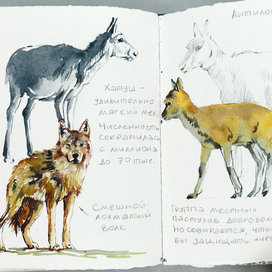 Антилоп
Хапуш -
удивительно
мягкий мех
Численность
сократилась
с миллиона
до 70 тыс.
Смешной
лохматый
волк
Группа местных
пастухов добровол
но собирается, что
бы защищать чиру